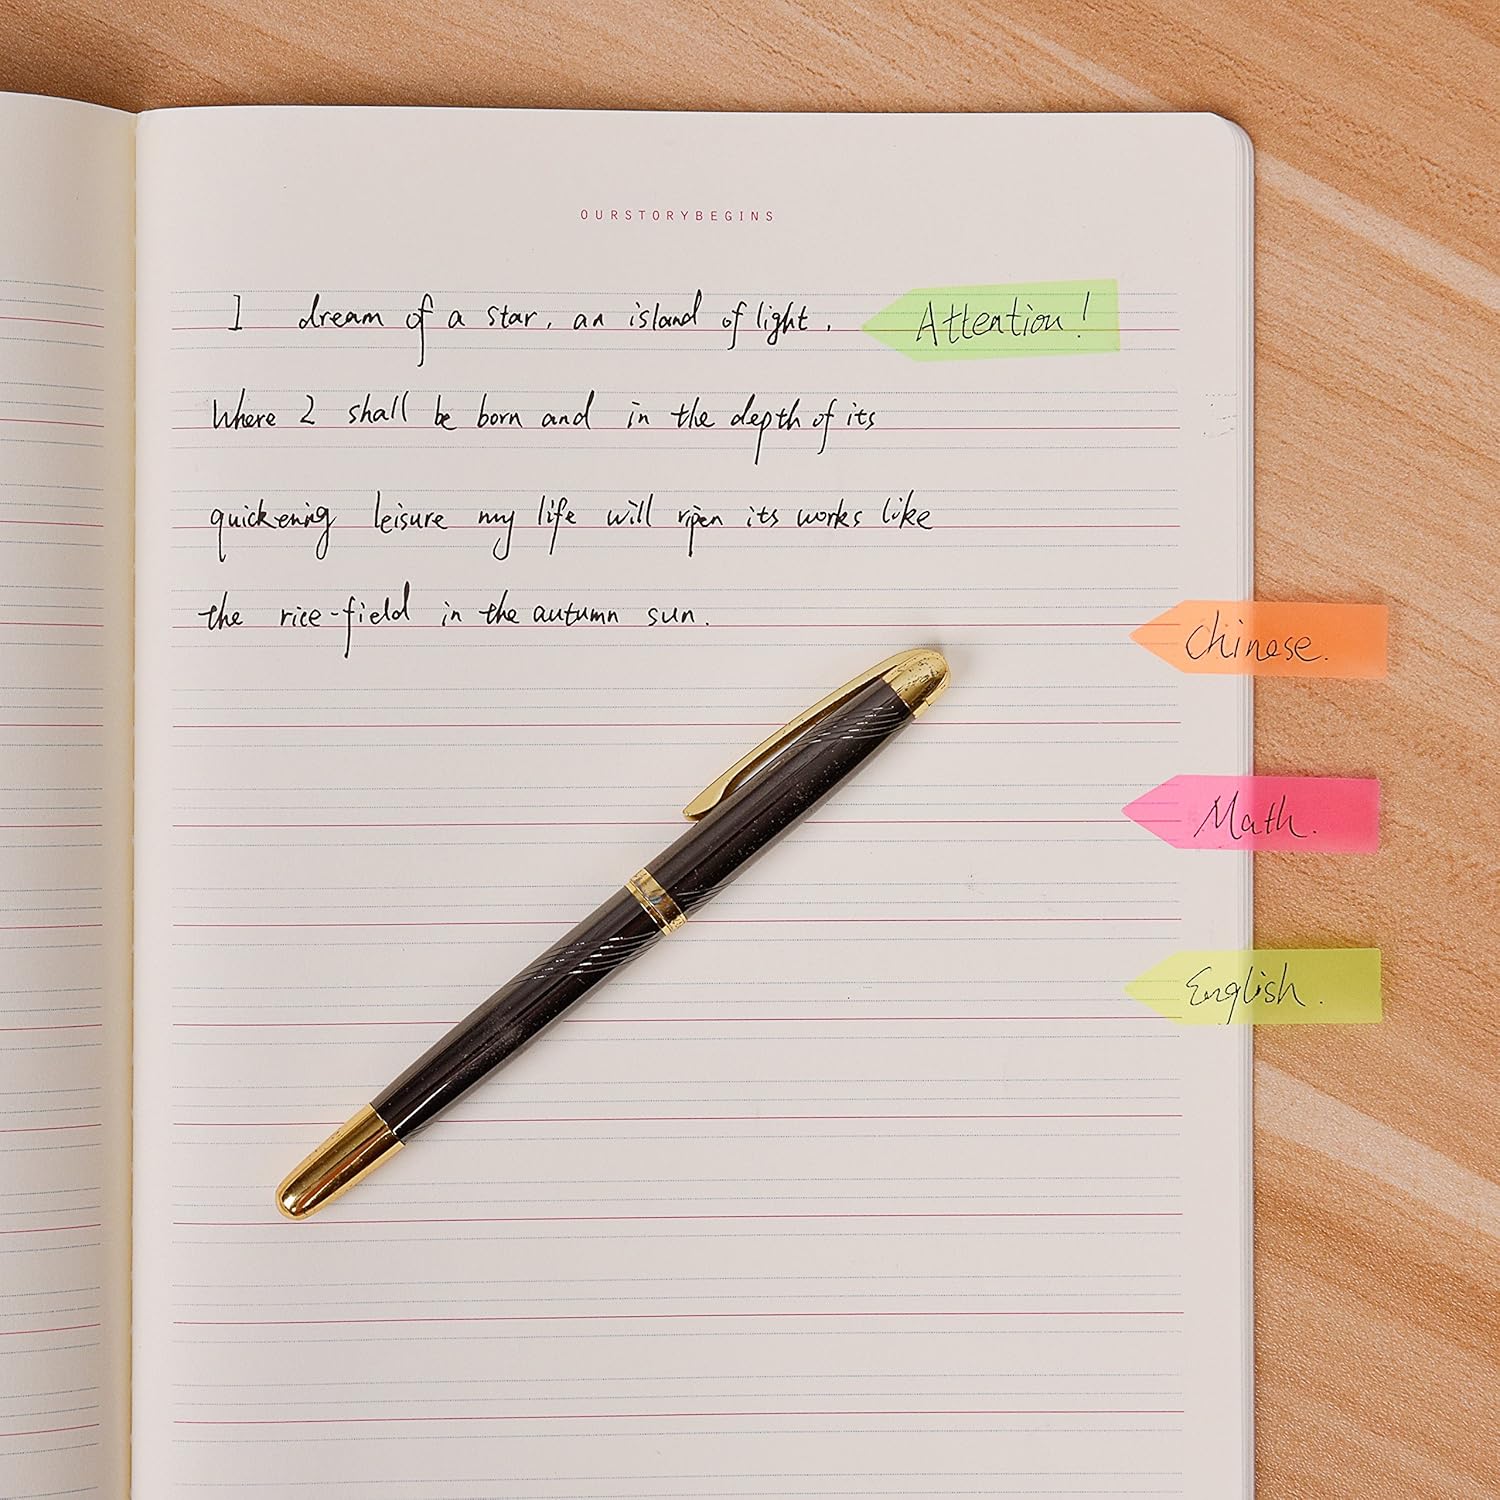 OURSTORYBEGINS
I dream of a star, an island of light,
Attention!
Where I shall be born and in the depth of its
quickening leisure my life will ripen its works like
the rice-field in the autumn sun.
Chinese.
Math.
English.